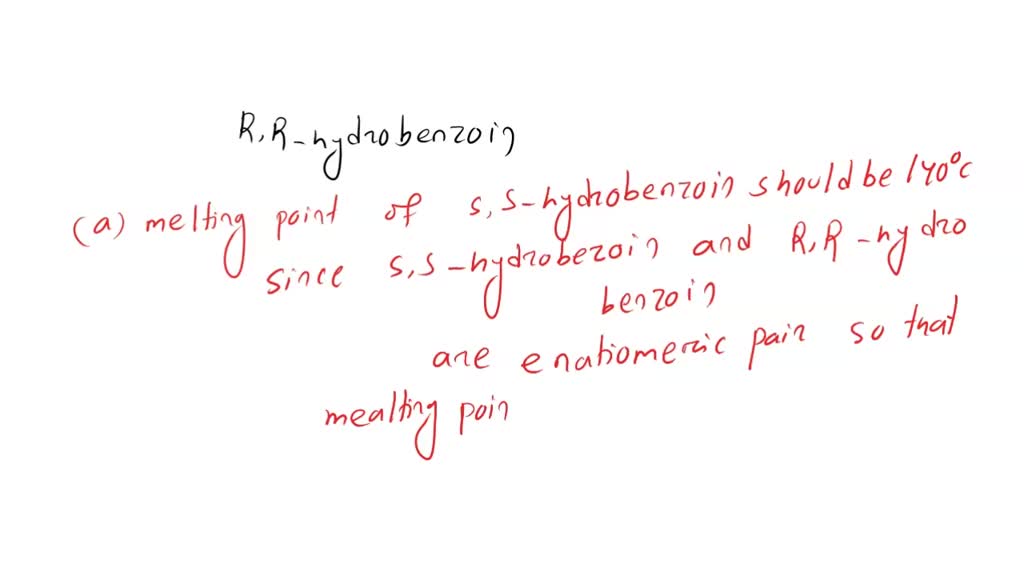 R,R-hydrobenzoin
(a) melting point of S,S-hydrobenzoin should be 140°c
since S,S-hydrobezoin and R,R-hydro
benzoin
are enatiomeric pair so that
mealting poin